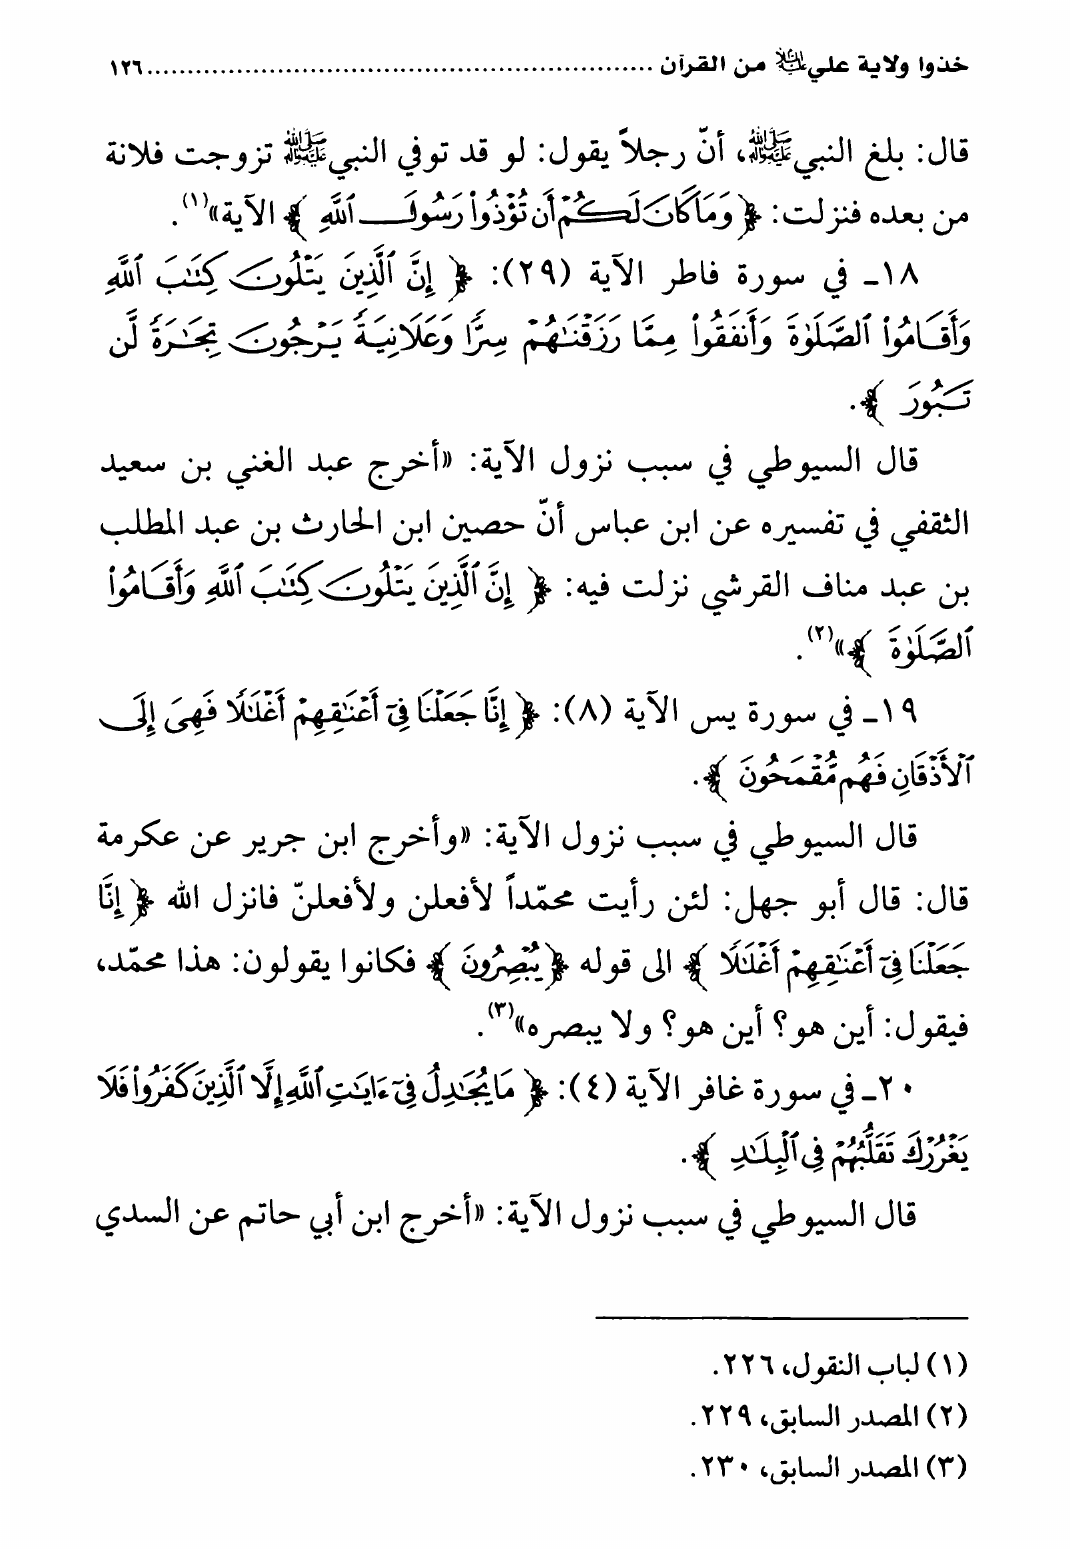 خذوا ولاية علي عليه السلام من القرآن ........................................................ ١٢٦
قال: بلغ النبي ﷺ، أنّ رجلاً يقول: لو قد توفي النبي ﷺ تزوجت فلانة
من بعده فنزلت: ﴿ وَمَا كَانَ لَكُمْ أَن تُؤْذُوا۟ رَسُولَ ٱللَّهِ ﴾ الآية»(١).
١٨ـ في سورة فاطر الآية (٢٩): ﴿ إِنَّ ٱلَّذِينَ يَتْلُونَ كِتَٰبَ ٱللَّهِ
وَأَقَامُوا۟ ٱلصَّلَوٰةَ وَأَنفَقُوا۟ مِمَّا رَزَقْنَٰهُمْ سِرًّا وَعَلَانِيَةً يَرْجُونَ تِجَٰرَةً لَّن
تَبُورَ ﴾.
قال السيوطي في سبب نزول الآية: «أخرج عبد الغني بن سعيد
الثقفي في تفسيره عن ابن عباس أنّ حصين ابن الحارث بن عبد المطلب
بن عبد مناف القرشي نزلت فيه: ﴿ إِنَّ ٱلَّذِينَ يَتْلُونَ كِتَٰبَ ٱللَّهِ وَأَقَامُوا۟
ٱلصَّلَوٰةَ ﴾»(٢).
١٩ـ في سورة يس الآية (٨): ﴿ إِنَّا جَعَلْنَا فِىٓ أَعْنَٰقِهِمْ أَغْلَٰلًا فَهِىَ إِلَى
ٱلْأَذْقَانِ فَهُم مُّقْمَحُونَ ﴾.
قال السيوطي في سبب نزول الآية: «وأخرج ابن جرير عن عكرمة
قال: قال أبو جهل: لئن رأيت محمّداً لأفعلن ولأفعلنّ فانزل الله ﴿ إِنَّا
جَعَلْنَا فِىٓ أَعْنَٰقِهِمْ أَغْلَٰلًا ﴾ الى قوله ﴿ يُبْصِرُونَ ﴾ فكانوا يقولون: هذا محمّد،
فيقول: أين هو؟ أين هو؟ ولا يبصره»(٣).
٢٠ـ في سورة غافر الآية (٤): ﴿ مَا يُجَٰدِلُ فِىٓ ءَايَٰتِ ٱللَّهِ إِلَّا ٱلَّذِينَ كَفَرُوا۟ فَلَا
يَغْرُرْكَ تَقَلُّبُهُمْ فِى ٱلْبِلَٰدِ ﴾.
قال السيوطي في سبب نزول الآية: «أخرج ابن أبي حاتم عن السدي
(١) لباب النقول، ٢٢٦.
(٢) المصدر السابق، ٢٢٩.
(٣) المصدر السابق، ٢٣٠.